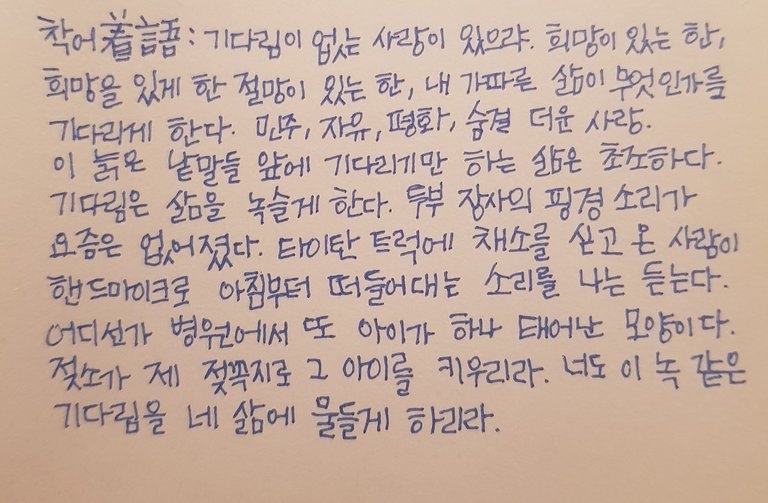 착어着語: 기다림이 없는 사랑이 있으랴. 희망이 있는 한,
희망을 있게 한 절망이 있는 한, 내 가파른 삶이 무엇인가를
기다리게 한다. 민주, 자유, 평화, 숨결 더운 사랑.
이 늙은 낱말들 앞에 기다리기만 하는 삶은 초조하다.
기다림은 삶을 녹슬게 한다. 두부 장사의 핑경 소리가
요즘은 없어졌다. 타이탄 트럭에 채소를 싣고 온 사람이
핸드마이크로 아침부터 떠들어대는 소리를 나는 듣는다.
어디선가 병원에서 또 아이가 하나 태어난 모양이다.
젖소가 제 젖꼭지로 그 아이를 키우리라. 너도 이 녹 같은
기다림을 네 삶에 물들게 하리라.